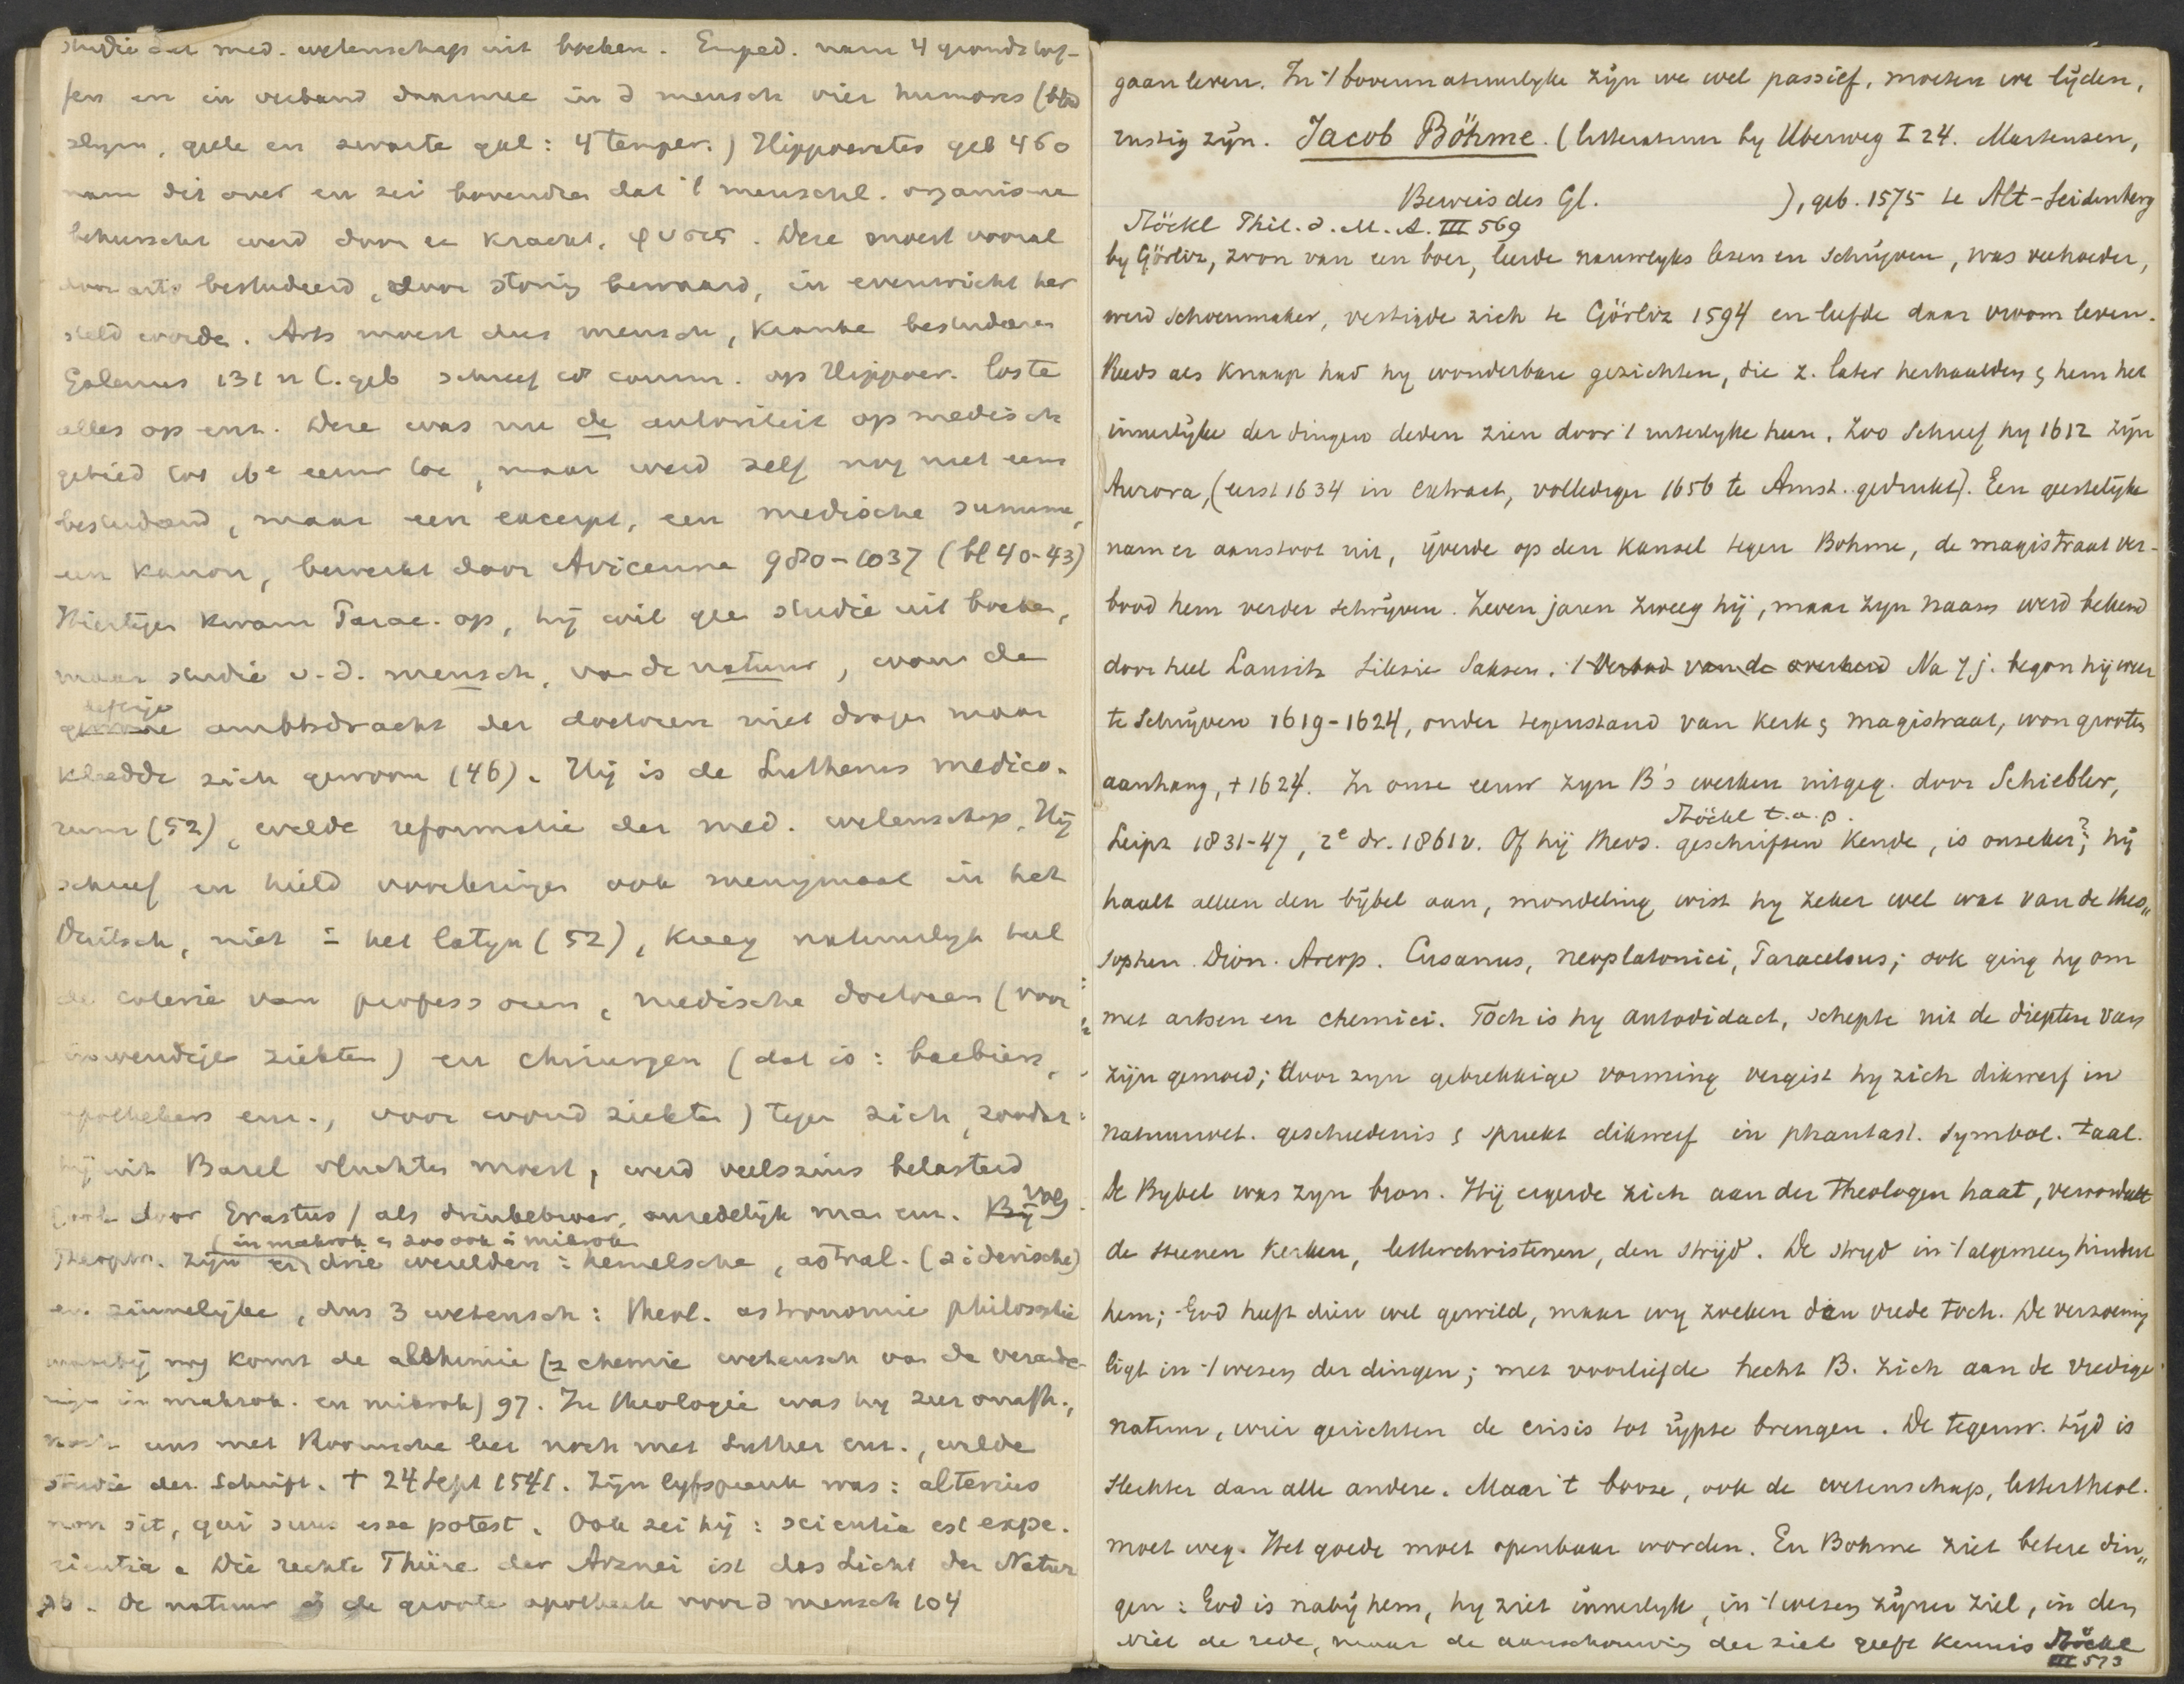 studie der med. wetenschap uit boeken. Emped. nam 4 grondstof-
fen en in verband daarmee in d mensch vier humores (bloed
slijm, gele en zwarte gal: 4 temper.) Hippocrates geb 460
nam dit over en zei bovendien dat 't menschel. organisme
beheerscht werd door ee kracht, φυσις. Deze moest vooral
door arts bestudeerd, door storing bewaard, in evenwicht her
steld worde. Arts moest dus mensch, kranke bestudeeren
Galenus 131 n C. geb schreef comm. op Hippocr. loste
alles op enz. Deze was nu de autoriteit op medisch
gebied tot 16e eeuw toe, maar werd zelf nog niet eens
bestudeerd, maar een excerpt, een medische summa,
een kanon, bewerkt door Avicenna 980-1037 (bl 40-43)
Hiertegen kwam Parac. op, hij wil gee studie uit boeken,
maar studie v. d. mensch, van de natuur, wou de
deftige
gewone ambtsdracht der doctoren niet dragen maar
kleedde zich gewoon (46). Hij is de Lutherus medico-
rum (52), wilde reformatie der med. wetenschap. Hij
schreef en hield voorlezingen ook menigmaal in het
Duitsch, niet in het latijn (52), kreeg natuurlijk heel
de coterie van professoren, medische doctoren (voor
inwendige ziekten) en chirurgen (dat is: barbiers,
apothekers enz., voor wond ziekten) tegen zich, zoodat
hij uit Bazel vluchten moest, werd veelszins belasterd
(ook door Erastus) als drinkebroer, onzedelijk man enz. Bij Volg
(in makrok en zoo ook in mikrok
Theophr. zijn er drie werelden: hemelsche, astral. (siderische)
en zinnelijke, dus 3 wetensch: theol. astronomie philosophie
waarbij nog komt de alchimie (= chemie wetensch van de verande-
ringen in makrok. en mikrok) 97. In theologie was hij zeer onafh.,
noch eens met Roomsche leer noch met Luther enz., wilde
studie der Schrift. † 24 Sept 1541. Zijn lijfspreuk was: alterius
non sit, qui suus esse potest. Ook zei hij: scientia est expe-
rientia. Die rechte Thüre der Arznei ist das Licht der Natur
De natuur is de groote apotheek voor d mensch 104
gaan leven. In 't bovennatuurlyke zijn we wel passief, moeten we lijden,
rustig zijn. Jacob Böhme. (litteratuur by Uberweg I 24. Martensen,
Beweis des Gl. ), geb. 1575 te Alt-Seidenberg
Stöckl Phil. d. M. A. III 569
by Görlitz, zoon van een boer, leerde nauwelyks lezen en schrijven, was veehoeder,
werd schoenmaker, vestigde zich te Görlitz 1594 en leefde daar vroom leven.
Reeds als knaap had hy wonderbare gezichten, die z. later herhaalden & hem het
innerlijke der dingen deden zien door 't uiterlyke heen. Zoo schreef hy 1612 zijn
Aurora, (eerst 1634 in extract, vollediger 1656 te Amst. gedrukt). Een geestelijke
nam er aanstoot uit, ijverde op den kansel tegen Bohme, de magistraat ver-
bood hem verder schrijven. Zeven jaren zweeg hij, maar zyn naam werd bekend
door heel Lausitz Silesie Saksen. 't Verbod van de overheid Na 7 j. begon hij weer
te schrijven 1619-1624, onder tegenstand van kerk & magistraat, won grooten
aanhang, † 1624. In onze eeuw zyn B's werken uitgeg. door Schiebler,
Stöckl t.a.p.
Leipz 1831-47, 2e dr. 1861 v. Of hij theos. geschriften kende, is onzeker?; hij
haalt alleen den bijbel aan, mondeling wist hy zeker wel wat van de theo„
sophen Dion. Areop. Cusanus, neoplatonici, Paracelsus; ook ging hy om
met artsen en chemici. Toch is hy autodidact, schepte uit de diepten van
zijn gemoed; door zyn gebrekkige vorming vergist hy zich dikwerf in
natuurwet. geschiedenis & spreekt dikwerf in phantast. symbol. taal.
De Bybel was zyn bron. Hij ergerde zich aan der Theologen haat,
de steenen kerken, letterchristenen, den strijd. De stryd in 't algemeen hindert
hem; God heeft dien wel gewild, maar wy zoeken den vrede toch. De verzoening
ligt in 't wezen der dingen; met voorliefde hecht B. zich aan de vredige
natuur, wier gerichten de crisis tot rijpte brengen. De tegenw. tijd is
slechter dan alle andere. Maar 't booze, ook de wetenschap, lettertheol.
moet weg. Het goede moet openbaar worden. En Bohme ziet betere din„
gen: God is nabij hem, hy ziet innerlyk, in 't wezen zijner ziel, in den
Niet de rede, maar de aanschouwing der ziel geeft kennis Stöckl
III 573